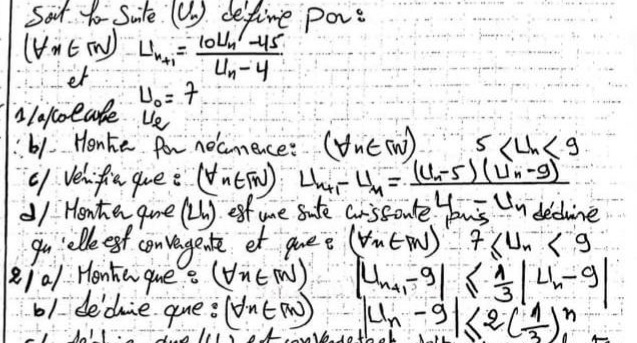 Soit la Suite (Un) définie par :
(∀n∈IN) Un+1 = (10Un - 45) / (Un - 4)
et U0 = 7
1/a/ calculer U2
b/ Montrer par récurrence : (∀n∈IN) 5 < Un < 9
c/ Vérifier que : (∀n∈IN) Un+1 - Un = (Un-5)(Un-9) / (4 - Un)
d/ Montrer que (Un) est une suite croissante puis déduire
qu'elle est convergente et que : (∀n∈IN) 7 ≤ Un < 9
2/a/ Montrer que : (∀n∈IN) |Un+1 - 9| ≤ 1/3 |Un - 9|
b/ déduire que : (∀n∈IN) |Un - 9| ≤ 2(1/3)^n